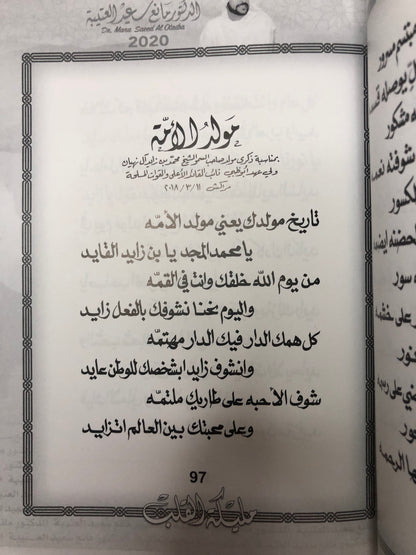 الدكتور مانع سعيد العتيبة
Dr. Mana Saeed Al Otaiba
2020
مولد الأمّة
بمناسبة ذكرى مولد صاحب السمو الشيخ محمد بن زايد آل نهيان
ولي عهد أبوظبي نائب القائد الأعلى للقوات المسلحة
مراكش ١١/٣/٢٠١٨
تاريخ مولدك يعني مولد الأمّه
يا محمد المجد يا بن زايد القايد
من يوم الله خلقك وانت في القمّه
واليوم نحنا نشوفك بالفعل زايد
كل همك الدار فيك الدار مهتمّه
وانشوف زايد ابشخصك للوطن عايد
شوف الأحبه على طاريك ملتمّه
وعلى محبتك بين العالم اتزايد
97
مليكة القلب
مبتسم سرور
مشكور
شوفته نعم
سور
على خشم
نور